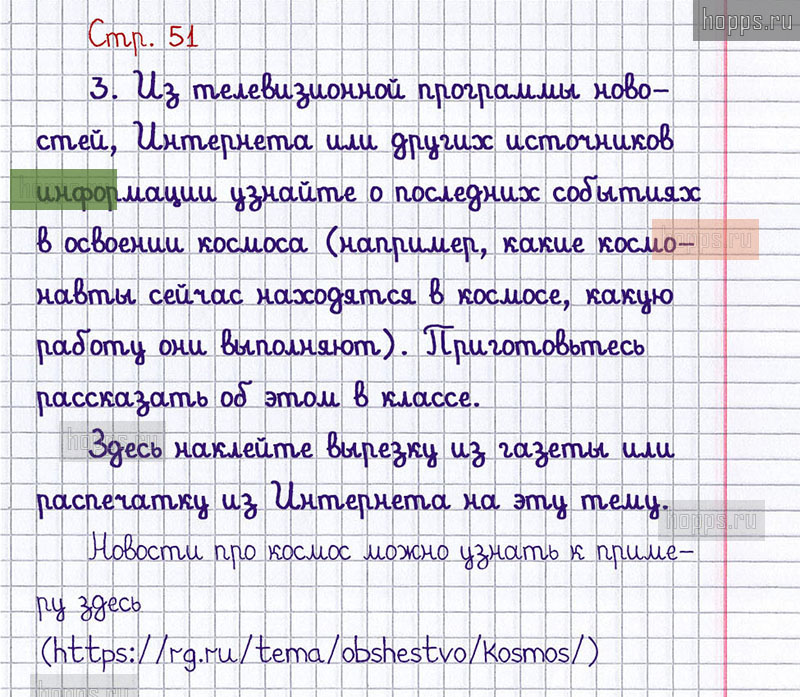 hopps.ru
Стр. 51
3. Из телевизионной программы ново-
стей, Интернета или других источников
информации узнайте о последних событиях
в освоении космоса (например, какие космо-
hopps.ru
навты сейчас находятся в космосе, какую
работу они выполняют). Приготовьтесь
рассказать об этом в классе.
Здесь наклейте вырезку из газеты или
распечатку из Интернета на эту тему.
hopps.ru
Новости про космос можно узнать к приме-
ру здесь
(https://rg.ru/tema/obshestvo/kosmos/)
hopps.ru